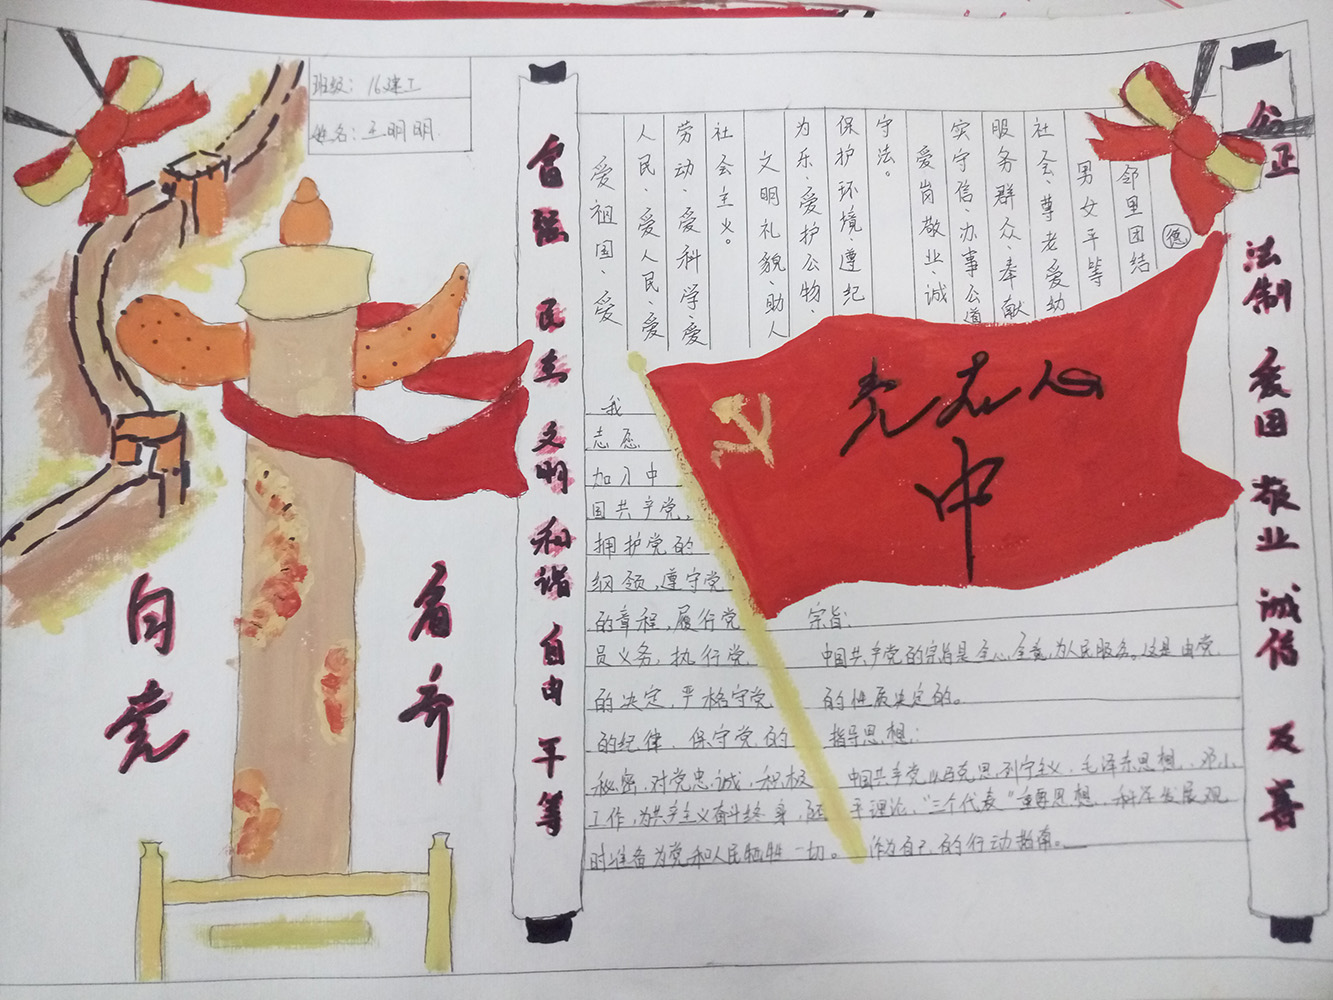 班级：16建工
姓名：王明明
向党
看齐
富强 民主 文明 和谐 自由 平等
爱祖国、爱
人民、爱人民、爱
劳动、爱科学、爱
社会主义。
文明礼貌、助人
为乐、爱护公物、
保护环境、遵纪
守法。
爱岗敬业、诚
实守信、办事公道
服务群众、奉献
社会、尊老爱幼
男女平等
邻里团结
德
党在心
中
我
志愿
加入中
国共产党，
拥护党的
纲领，遵守党
的章程，履行党
员义务，执行党
的决定，严格守党
的纪律，保守党的
秘密，对党忠诚，积极
工作，为共产主义奋斗终身，随
时准备为党和人民牺牲一切。
宗旨：
中国共产党的宗旨是全心全意为人民服务。这是由党
的性质决定的。
指导思想：
中国共产党以马克思列宁主义，毛泽东思想，邓小
平理论，“三个代表”重要思想，科学发展观
作为自己的行动指南。
公正 法制 爱国 敬业 诚信 友善